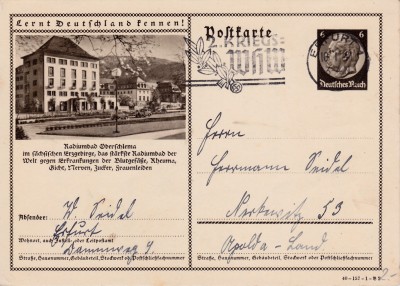 Lernt Deutschland kennen!
Postkarte
2. KRIEGS-
WHW
6 6
Deutsches Reich
Radiumbad Oberschlema
im sächsischen Erzgebirge, das stärkste Radiumbad der
Welt gegen Erkrankungen der Blutgefäße, Rheuma,
Gicht, Nerven, Zucker, Frauenleiden
Absender: W. Seidel
Erfurt
Wohnort, auch Zustell- oder Leitpostamt
Dammweg 9.
Straße, Hausnummer, Gebäudeteil, Stockwerk od. Postschließfachnummer
Herrn
Herrmann Seidel
53
Apolda - Land
Straße, Hausnummer, Gebäudeteil, Stockwerk od. Postschließfachnummer
2-